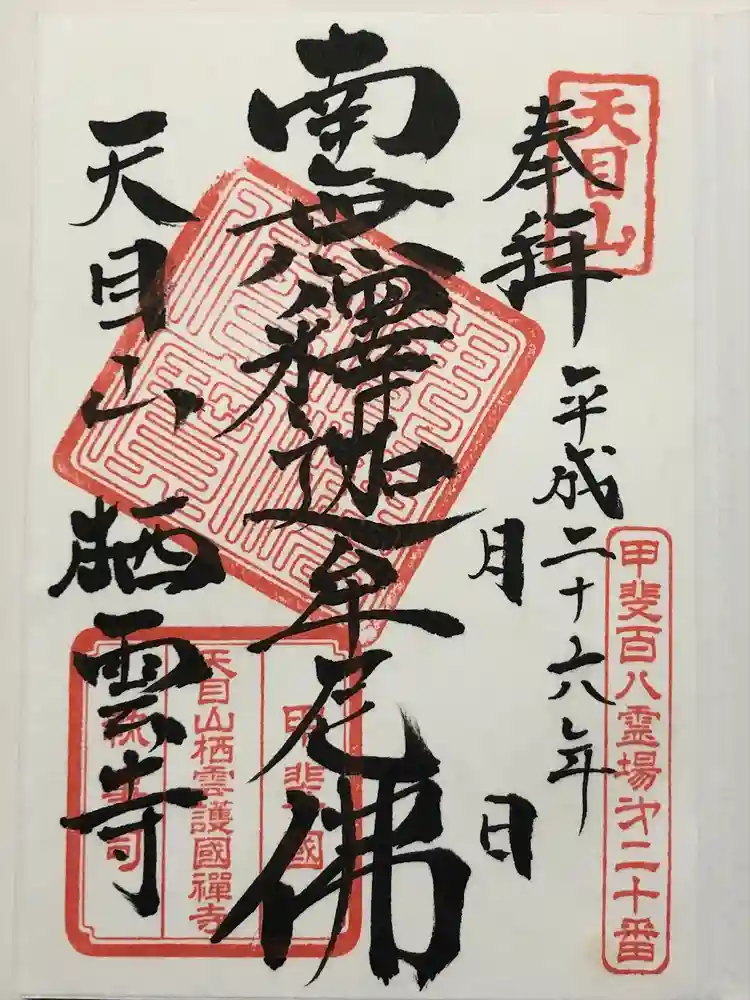 天目山
奉拜
平成二十六年
月
日
甲斐百八霊場第二十番
南無釋迦牟尼佛
天目山
栖雲寺
甲斐國
天目山栖雲護國禪寺